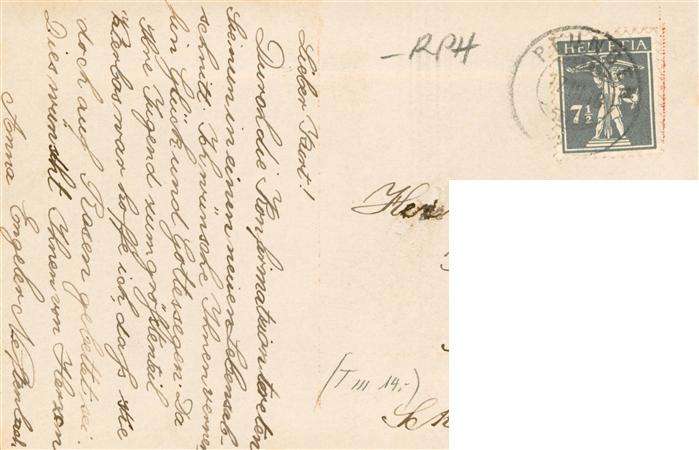 Lieber Kurt!
Durch die Konfirmation treten
Sie nun in einen neuen Lebensab-
schnitt. Ich wünsche Ihnen ferner
hin Glück und Gottessegen. Da
Ihre Jugend zum größtenteil
war hoffe ich, daß sie
doch auf Rosen gebettet sei.
Dies wünscht Ihnen von Herzen
Anna Engeler
-RPH
HELVETIA
7½
Herr
(T III 14.-)